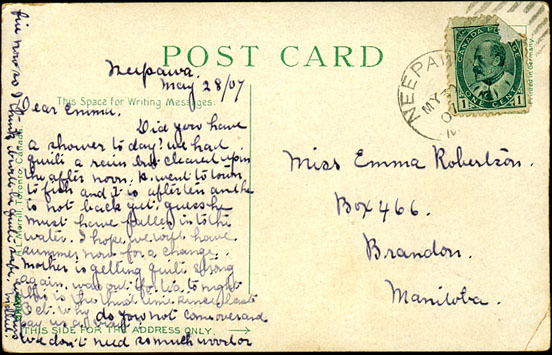 POST CARD
Neepawa.
May 28/07
This Space for Writing Messages.
Dear Emma.
Did you have
a shower to day? we had
quite a rain but cleared up in
the after noon. K. went to town
to fish and it is after ten and he
is not back yet, guess he
must have fallen into the
water. I hope we will have
summer now for a change.
Mother is getting quite strong
again. was out for tea to night
this is the first time since last
Oct. why do you not come over and
pay us a
we don't need so much wood or
THIS SIDE FOR THE ADDRESS ONLY.
fire now I think
Toronto, Canada.
NEEPAWA
MY
CANADA POSTAGE
1 ONE CENT 1
Printed in Germany
Miss Emma Robertson.
Box 466.
Brandon.
Manitoba.